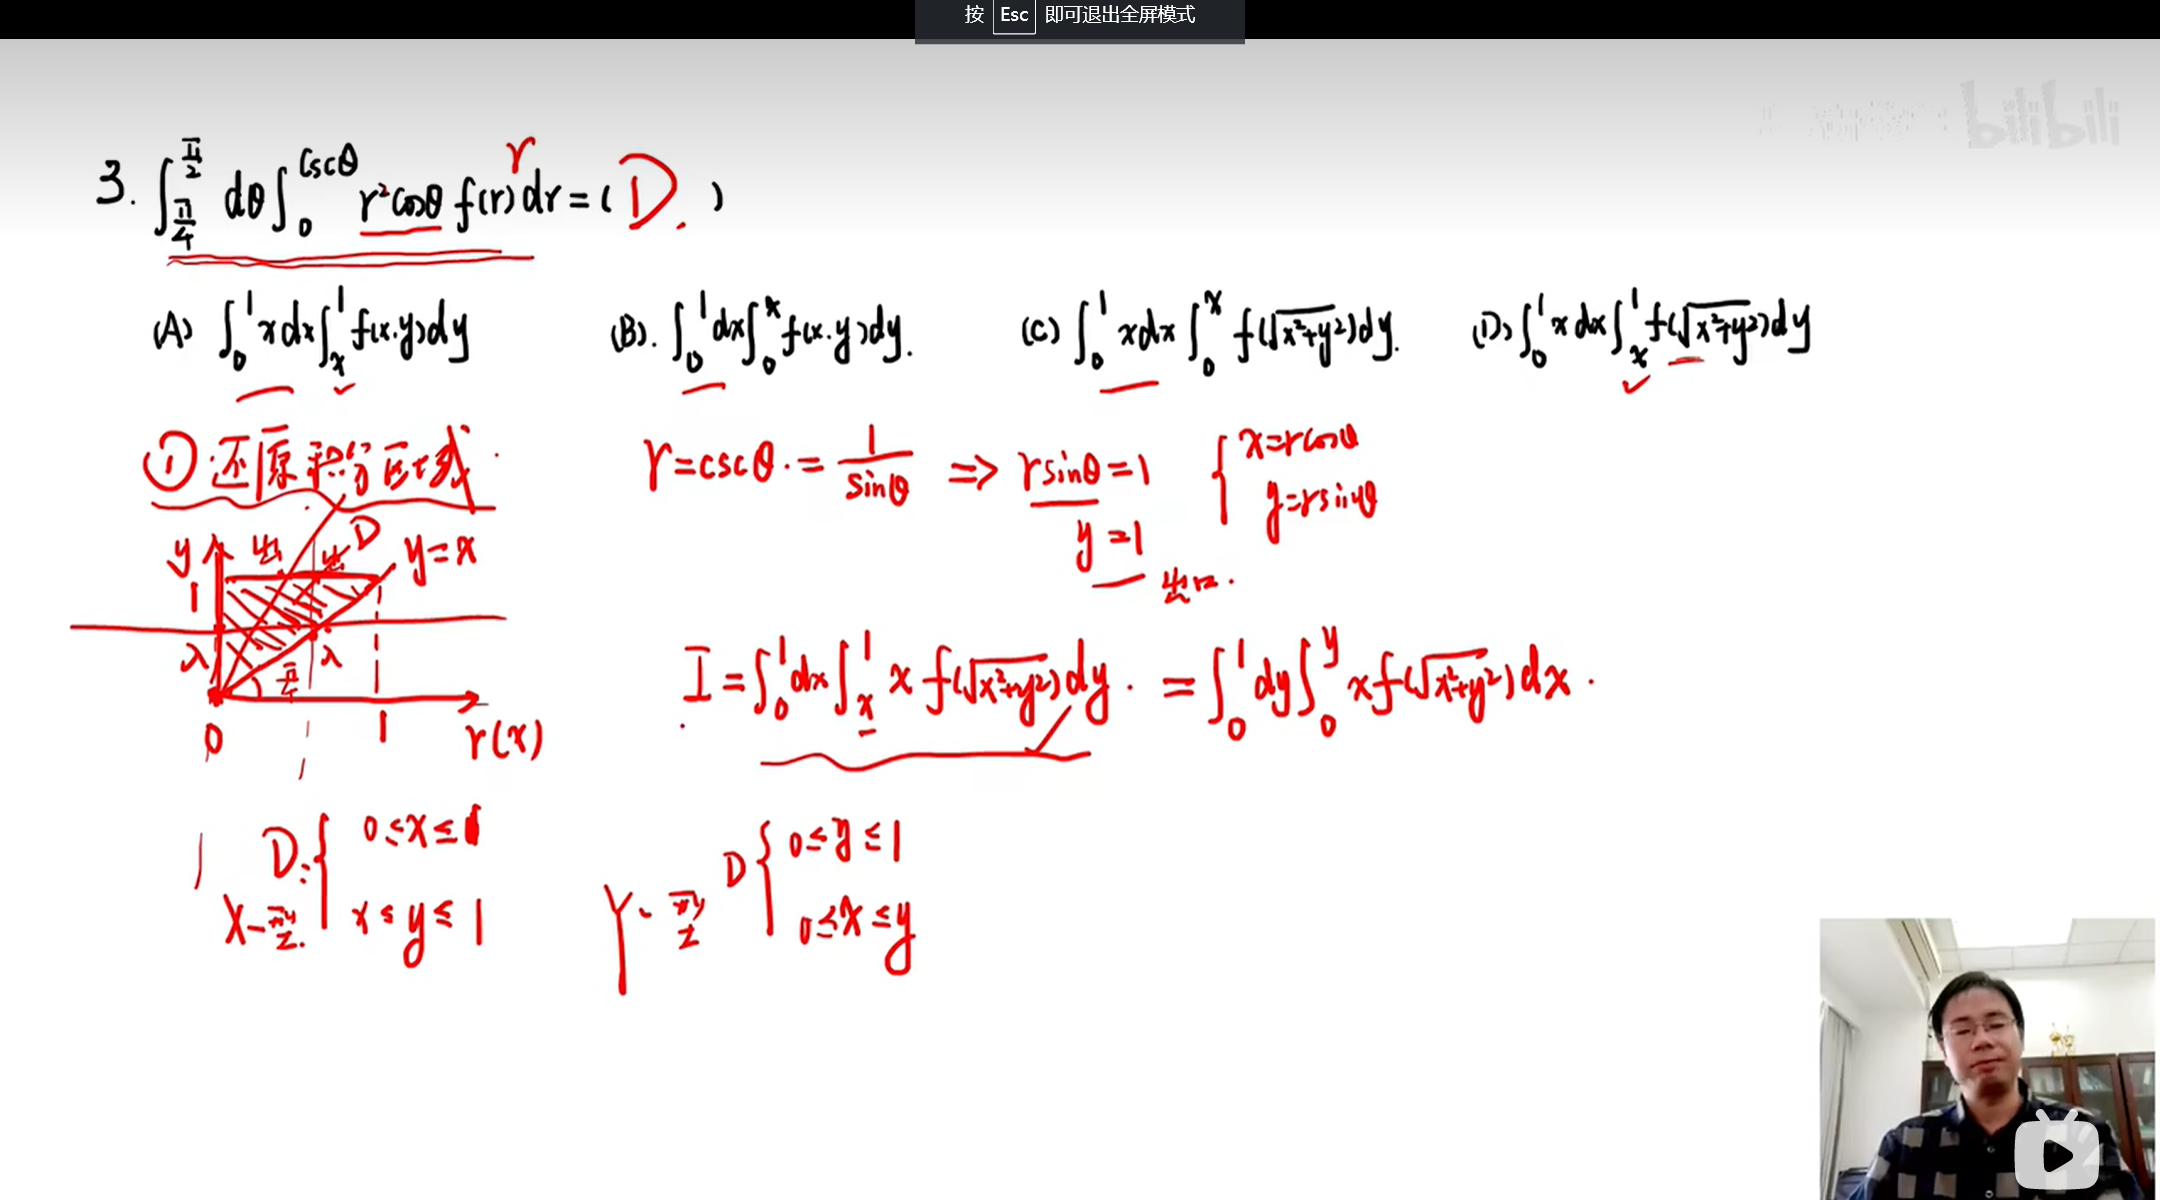 按 Esc 即可退出全屏模式
bilibili
3. ∫_{π/4}^{π/2} dθ ∫_0^{cscθ} r²cosθ f(r) dr = ( D. )
r
(A) ∫_0^1 x dx ∫_x^1 f(x·y) dy
(B). ∫_0^1 dx ∫_0^x f(x·y) dy.
(C) ∫_0^1 x dx ∫_0^x f(√(x²+y²)) dy.
(D) ∫_0^1 x dx ∫_x^1 f(√(x²+y²)) dy
① 还原积分区域.
r = cscθ. = 1/sinθ ⇒ rsinθ = 1
{ x = rcosθ
y = rsinθ
y = 1
出口.
y 出 出 D y = x
1
入 π/4 入
0 1 r(x)
I = ∫_0^1 dx ∫_x^1 x f(√(x²+y²)) dy. = ∫_0^1 dy ∫_0^y x f(√(x²+y²)) dx.
D: { 0 ≤ x ≤ 1
X-型. x ≤ y ≤ 1
D { 0 ≤ y ≤ 1
Y-型 0 ≤ x ≤ y